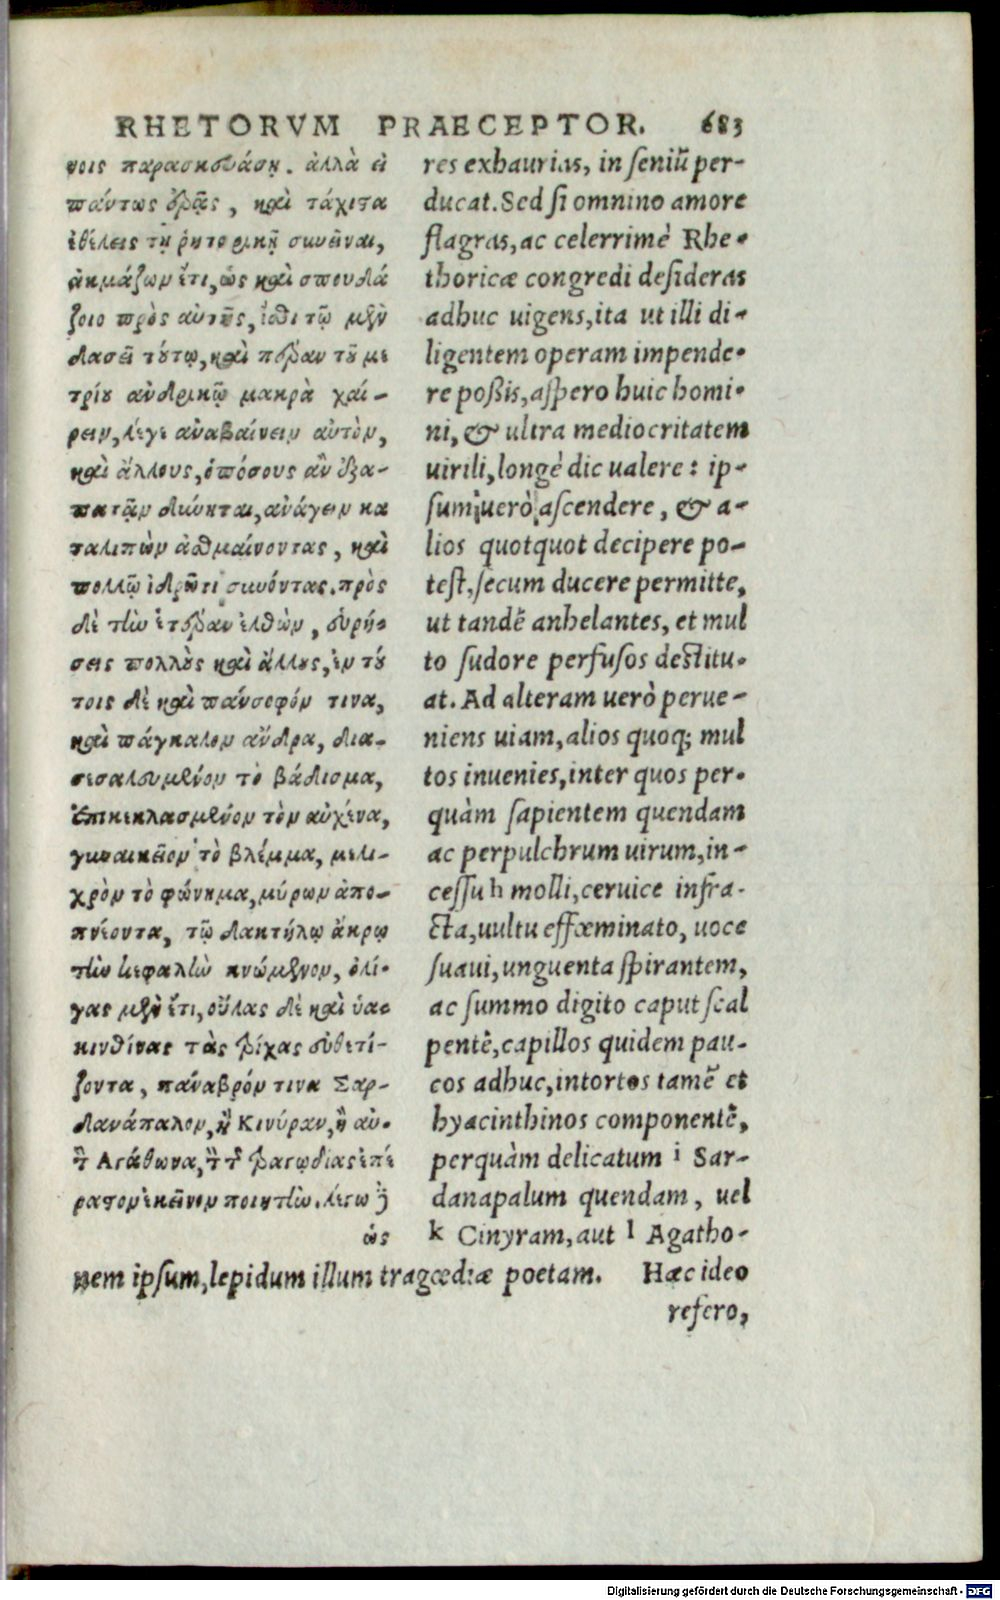 RHETORVM PRAECEPTOR. 683
νοις παρασκευάσῃ. ἀλλὰ εἰ
πάντως ἐρᾷς, καὶ τάχιστα
ἐθέλεις τῇ ῥητορικῇ συνεῖναι,
ἀκμάζων ἔτι, ὡς καὶ σπουδά
ζοιο πρὸς αὐτῆς, ἴθι τῷ μὲν
δασεῖ τούτῳ, καὶ πέραν τοῦ με
τρίου ἀνδρικῷ μακρὰ χαί-
ρειν, λέγε ἀναβαίνειν αὐτὸν,
καὶ ἄλλους, ὁπόσους ἂν ἐξα-
πατᾷν δύνηται, ἀνάγειν κα
ταλιπὼν ἀσθμαίνοντας, καὶ
πολλῷ ἱδρῶτι συνόντας. πρὸς
δὲ τὴν ἑτέραν ἐλθὼν, εὑρή-
σεις πολλοὺς καὶ ἄλλους, ἐν τού
τοις δὲ καὶ πάνσοφόν τινα,
καὶ πάγκαλον ἄνδρα, δια-
σεσαλευμένον τὸ βάδισμα,
ἐπικεκλασμένον τὸν αὐχένα,
γυναικεῖον τὸ βλέμμα, μελι-
χρὸν τὸ φώνημα, μύρων ἀπο-
πνέοντα, τῷ δακτύλῳ ἄκρῳ
τὴν κεφαλὴν κνώμενον, ὀλί-
γας μὲν ἔτι, οὔλας δὲ καὶ ὑα-
κινθίνας τὰς τρίχας εὐθετί-
ζοντα, πάναβρόν τινα Σαρ-
δανάπαλον, ἢ Κινύραν, ἢ αὐ-
τὸν Ἀγάθωνα, τὸν τῆς τραγῳδίας ἐπέ
ραστον ἐκεῖνον ποιητὴν. λέγω δὲ
ὡς
res exhaurias, in seniũ per-
ducat. Sed si omnino amore
flagras, ac celerrimè Rhe-
thoricæ congredi desideras
adhuc uigens, ita ut illi di-
ligentem operam impende-
re poßis, aspero huic homi-
ni, & ultra mediocritatem
uirili, longè dic ualere: ip-
sum uerò ascendere, & a-
lios quotquot decipere po-
test, secum ducere permitte,
ut tandẽ anhelantes, et mul
to sudore perfusos destitu-
at. Ad alteram uerò perue-
niens uiam, alios quoq; mul
tos inuenies, inter quos per-
quàm sapientem quendam
ac perpulchrum uirum, in-
cessu h molli, ceruice infra-
cta, uultu effœminato, uoce
suaui, unguenta spirantem,
ac summo digito caput scal
pentẽ, capillos quidem pau-
cos adhuc, intortos tamẽ et
hyacinthinos componentẽ,
perquàm delicatum i Sar-
danapalum quendam, uel
k Cinyram, aut l Agatho-
nem ipsum, lepidum illum tragœdiæ poetam. Hæc ideo
refero,
Digitalisierung gefördert durch die Deutsche Forschungsgemeinschaft - DFG